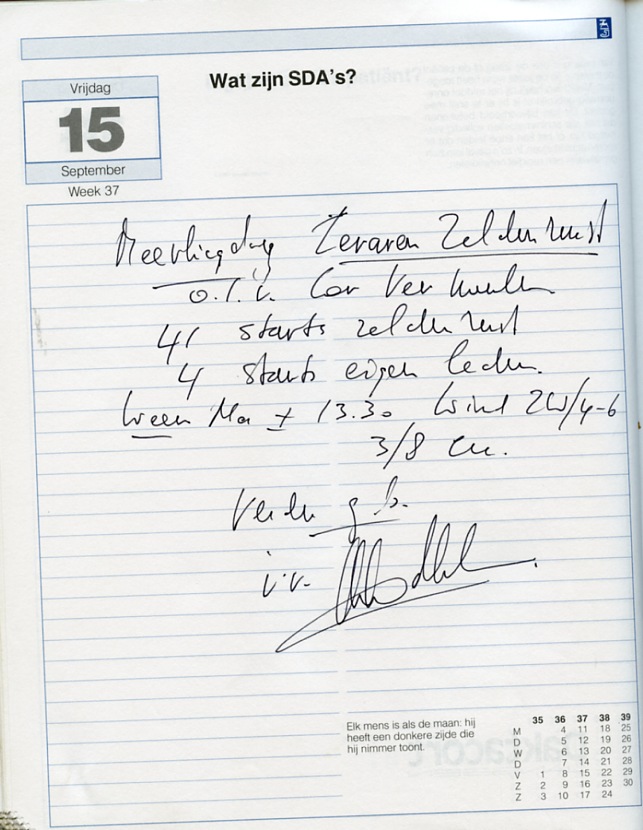 Wat zijn SDA's?
Vrijdag
15
September
Week 37
Meevliegdag Leraren Zelden rust
o.l.v. Cor Vermeulen
41 starts zelden rust
4 starts eigen leden.
Weer Ma ± 13.30 Wind ZW/4-6
3/8 cu.
Verder g.b.
i.v.
Elk mens is als de maan: hij
heeft een donkere zijde die
hij nimmer toont.
35 36 37 38 39
M 4 11 18 25
D 5 12 19 26
W 6 13 20 27
D 7 14 21 28
V 1 8 15 22 29
Z 2 9 16 23 30
Z 3 10 17 24